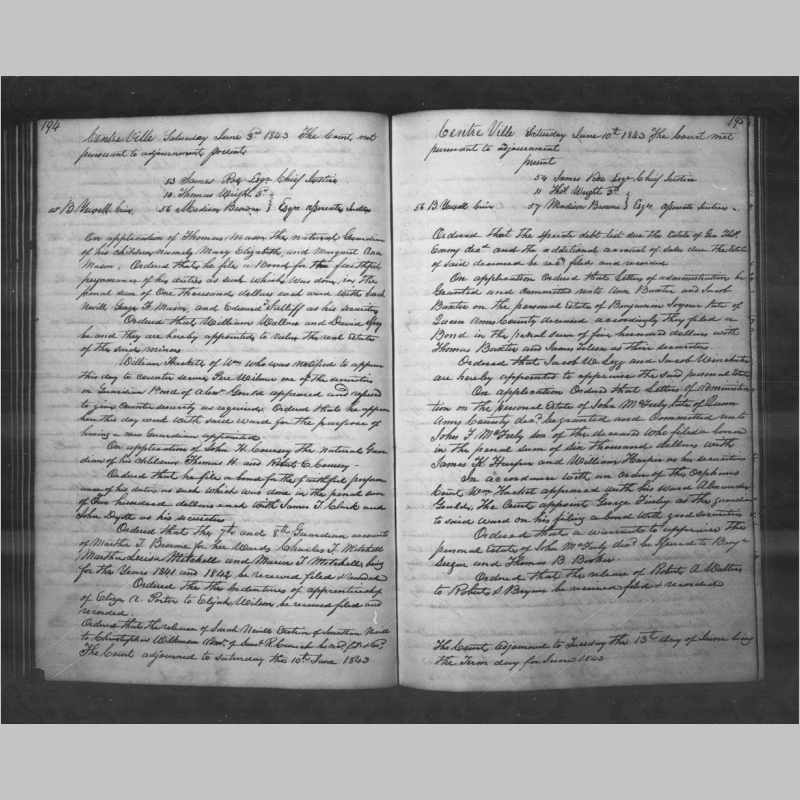 194
Centre Ville Saturday June 3d 1843 The Court met
pursuant to adjournment present
53 James Esqr Chief Justice
10 Thomas Wright 3d
B. Newell Crier 56 Madison Browne } Esqrs associate Justices
On application of Thomas Mason the natural Guardian
of his children namely Mary Elizabeth and Margaret Ann
Mason. Ordered that he file a Bond for the faithful
performance of his duties as such which was done, in the
penal sum of One thousand dollars each ward with
Nevill George F. Mason, and Edward as his security
Ordered that William Wallace and David
be and they are hereby appointed to value the real estate
of the said minors
William Hackett of Wm who was notified to appear
this day to counter secure Pere Wilmer one of the securities
in Guardian Bond of Gould appeared and refused
to give counter security as required. Ordered that he appear
here this day week with said ward for the purpose of
having a new Guardian appointed
On application of John H. Emory the natural Guar
dian of his children Thomas H. and Robert C. Emory
Ordered that he file a bond for the faithful perform
ance of his duties as such which was done in the penal sum
of Five hundred dollars each with James T. Clark and
John as his securities
Ordered that the 7th and 8th Guardian accounts
of Martha T. Browne for her Wards, Charles T. Mitchell
Martha Louisa Mitchell and Maria T. Mitchell being
for the Years 1841 and 1842 be received filed & recorded
Ordered the the Indentures of apprenticeship
of Eliza A. Porter to Elijah Wilson be received filed and
recorded
Ordered that the release of Sarah Nevill Exetrix of Jonathan Nevill
to Christopher Wilkinson
The Court adjourned to Saturday the 10th June 1843
195
Centre Ville Saturday June 10th 1843 The Court met
pursuant to adjournment
present
54 James Esqr Chief Justice
11 Thos Wright 3d
B. Newell Crier 57 Madison Browne } Esqrs associate Justices
Ordered that the sperate debt list due the estate of Gen Thos
Emory decd and the additional account of sales due the estate
of said deceased be recd filed and recorded
On application Ordered that letters of administration be
Granted and committed unto Ann Baxter and Jacob
Baxter on the personal estate of Benjamin late of
Queen Anns County deceased accordingly they filed a
Bond in the penal sum of five hundred dollars with
Thomas Baxter and James as their securities
Ordered that Jacob W. Legg and Jacob Winchester
are hereby appointed to appraise the said personal estate
On application Ordered that Letters of administra
tion on the personal estate of John McFeely late of Queen
Anns County decd be granted and committed unto
John F. McFeely son of the deceased who filed a bond
in the penal sum of six thousand dollars with
James H. Harper and William Harper as his securities
In accordance with an order of the Orphans
Court Wm Hackett appeared with his Ward Alexander
Gould, The Court appoint George Finley as the guardian
to said ward on his filing a bond with good securities
Ordered that a warrant to appraise the
personal estate of John McFeely decd be issued to Benj
and Thomas B. Baker
Ordered that the release of Robert A. Walters
to Robert S. Bryan be received filed & recorded
The Court adjourned to Tuesday the 13th day of June being
the Term day for June 1843